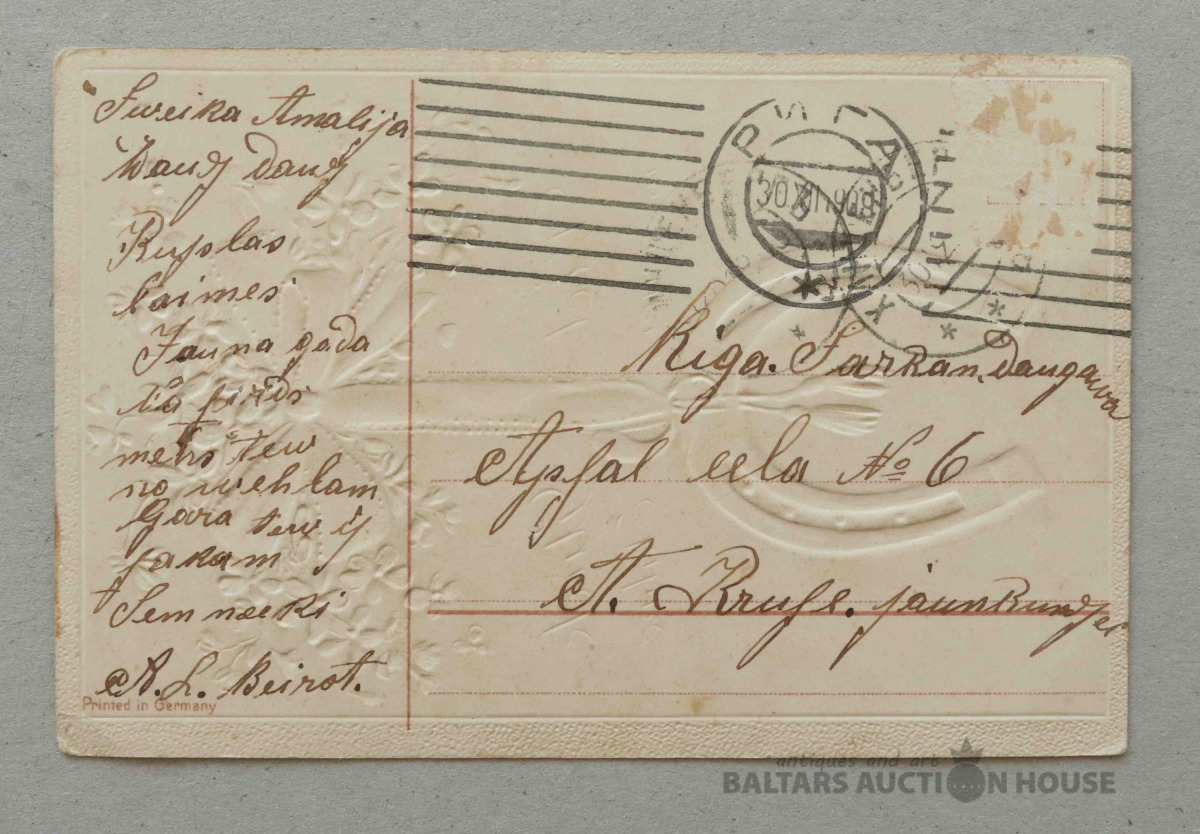 Sweika Amalija
Daudz daudz
Kuplas
laimes
Jauna gada
mehs tew
no wehlam
Gara tew
sakam
Semneeki
A. L. Beirot.
Printed in Germany
РИГА
30.XII.908
Riga. Sarkan. daugawa
Apsal eela № 6
A. Kruse. jaunkundzei
antiques and art
BALTARS AUCTION HOUSE